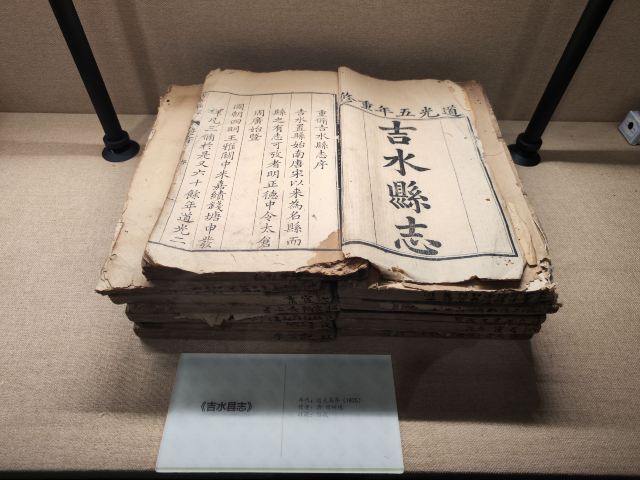 道光五年重修
吉水縣志
重脩吉水縣志序
吉水置縣始南唐宋以來為名縣而
縣之有志可攷者明正德中令太倉
周廣始暨
國朝四明王雅關中米嘉績錢塘申發
祥凡三於是又六十餘年道光二
《吉水县志》
年代：道光五年（1825）